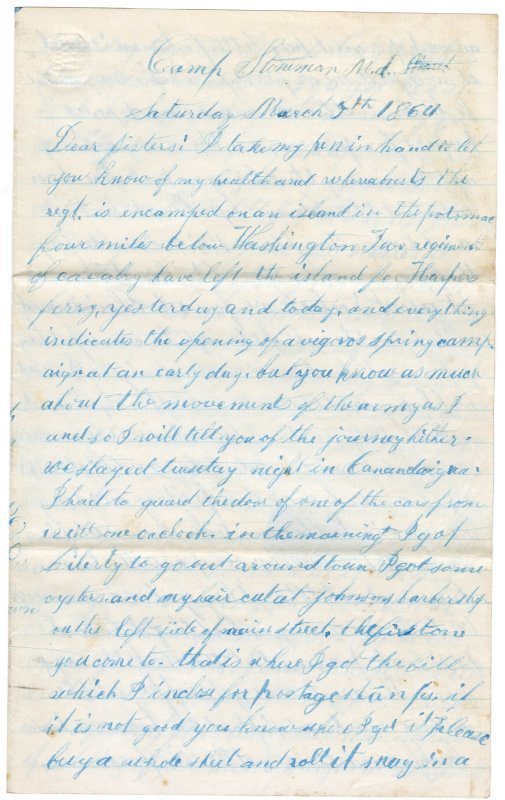 Camp Stoneman Md.
Saturday March 5th 1864
Dear sisters: I take my pen in hand to let
you know of my health and whereabouts the
regt. is encamped on an island in the potomac
four miles below Washington Two regiments
of cavalry have left the island for Harpers
ferry, yesterday and today, and everything
indicates the opening of a vigeros spring camp
aign at an early day: but you know as much
about the movement of the army as I
and so I will tell you of the journey hither:
we stayed tuesday night in Canandaigua:
I had to guard the door of one of the cars from
till one oclock. in the morning I got
liberty to go out around town I got some
oysters and my hair cut at johnsons barbershop
on the left side of main street. the first one
you come to. that is where I got the bill
which I inclose for postage stamps. if
it is not good you know where I got it Please
buy a whole sheet and roll it snug in a